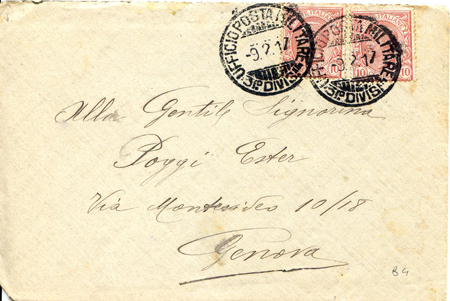 UFFICIO POSTA MILITARE
-9.2.17
UFFICIO POSTA MILITARE
-9.2.17
10
10
Alla Gentile Signorina
Poggi Ester
Via Montevideo 10/18
Genova